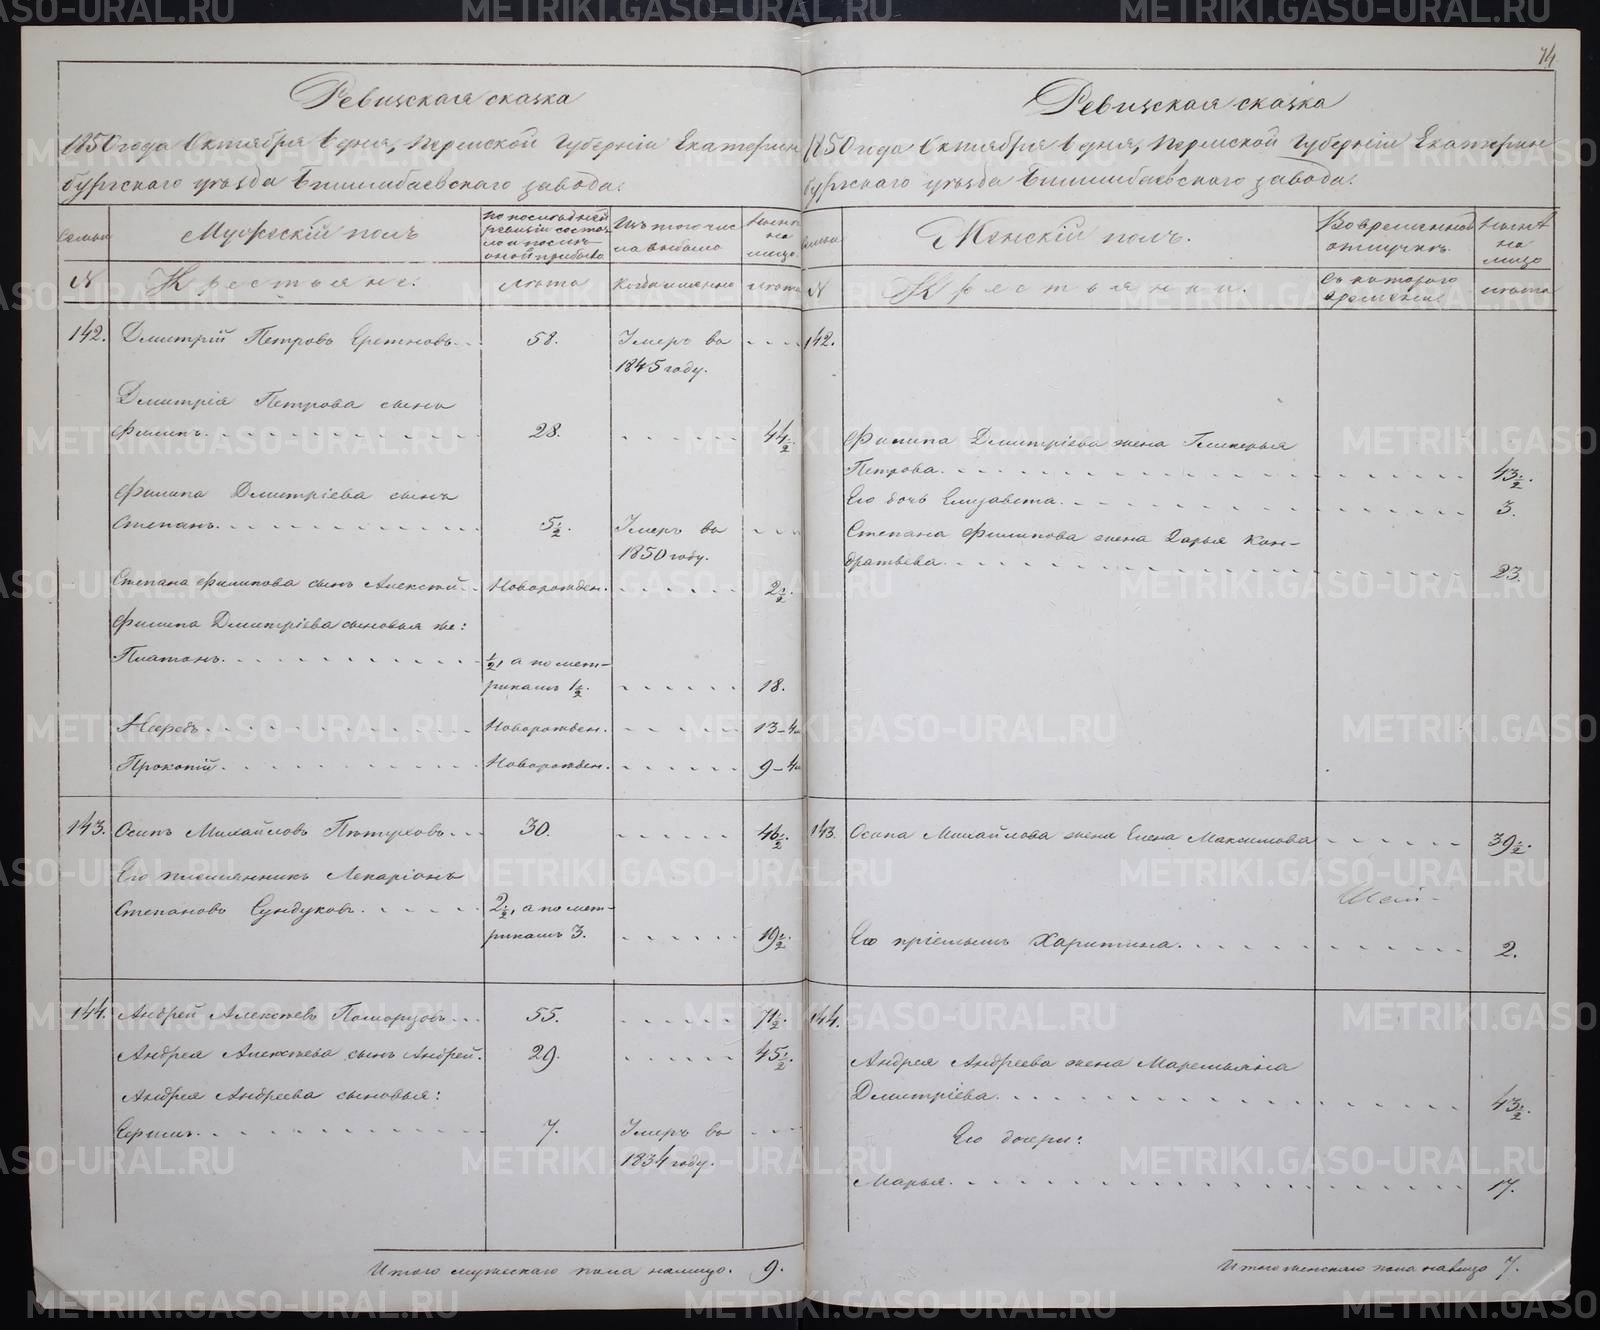 74
Ревизская сказка
1850 года Октября 6 дня, Пермской Губерніи Екатерин
бургскаго уѣзда Билимбаевскаго завода.
Семьи
Мужескій полъ
по послѣдней ревизіи состояло и послѣ оной прибыло
Изъ того числа выбыло
Нынѣ на лицо
№
Крестьяне.
лѣта
когда именно
лѣта
142. Дмитрій Петровъ 58. Умеръ въ
1845 году.
Дмитрія Петрова сынъ
Филипъ 28. 44½
Филипа Дмитріева сынъ
Степанъ 5½. Умеръ въ
1850 году.
Степана Филипова сынъ Алексѣй Новорожден. 2½.
Филипа Дмитріева сыновья же:
Платонъ ½, а по мет-
рикамъ 1½. 18.
Новорожден. 13-4м
Прокопій Новорожден. 9-4м
143. Осипъ Михайловъ Пѣтуховъ 30. 46½.
Его племянникъ
Степановъ Сундуковъ 2½, а по мет-
рикамъ 3. 19½.
144. Андрей Алексѣевъ 55. 71½.
Андрея Алексѣева сынъ Андрей. 29. 45½.
Андрея Андреева сыновья:
7. Умеръ въ
1834 году.
Итого мужескаго пола налицо. 9.
Ревизская сказка
1850 года Октября 6 дня, Пермской Губерніи Екатерин
бургскаго уѣзда Билимбаевскаго завода.
Семьи
Женскій полъ.
Во временной отлучкѣ.
Нынѣ на лицо
№
Крестьянки.
Съ котораго времени
лѣта
142.
Филипа Дмитріева жена Гликерья
Петрова 43½.
Его дочь Елизавета 3.
Степана Филипова жена Дарья Кон-
дратьева 23.
143. Осипа Михайлова жена Елена Максимова 39½.
Его пріемышъ Харитина 2.
144.
Андрея Андреева жена Маремьяна
Дмитріева 43½.
Его дочери:
Марья 17.
Итого женскаго пола налицо 7.
METRIKI.GASO-URAL.RU